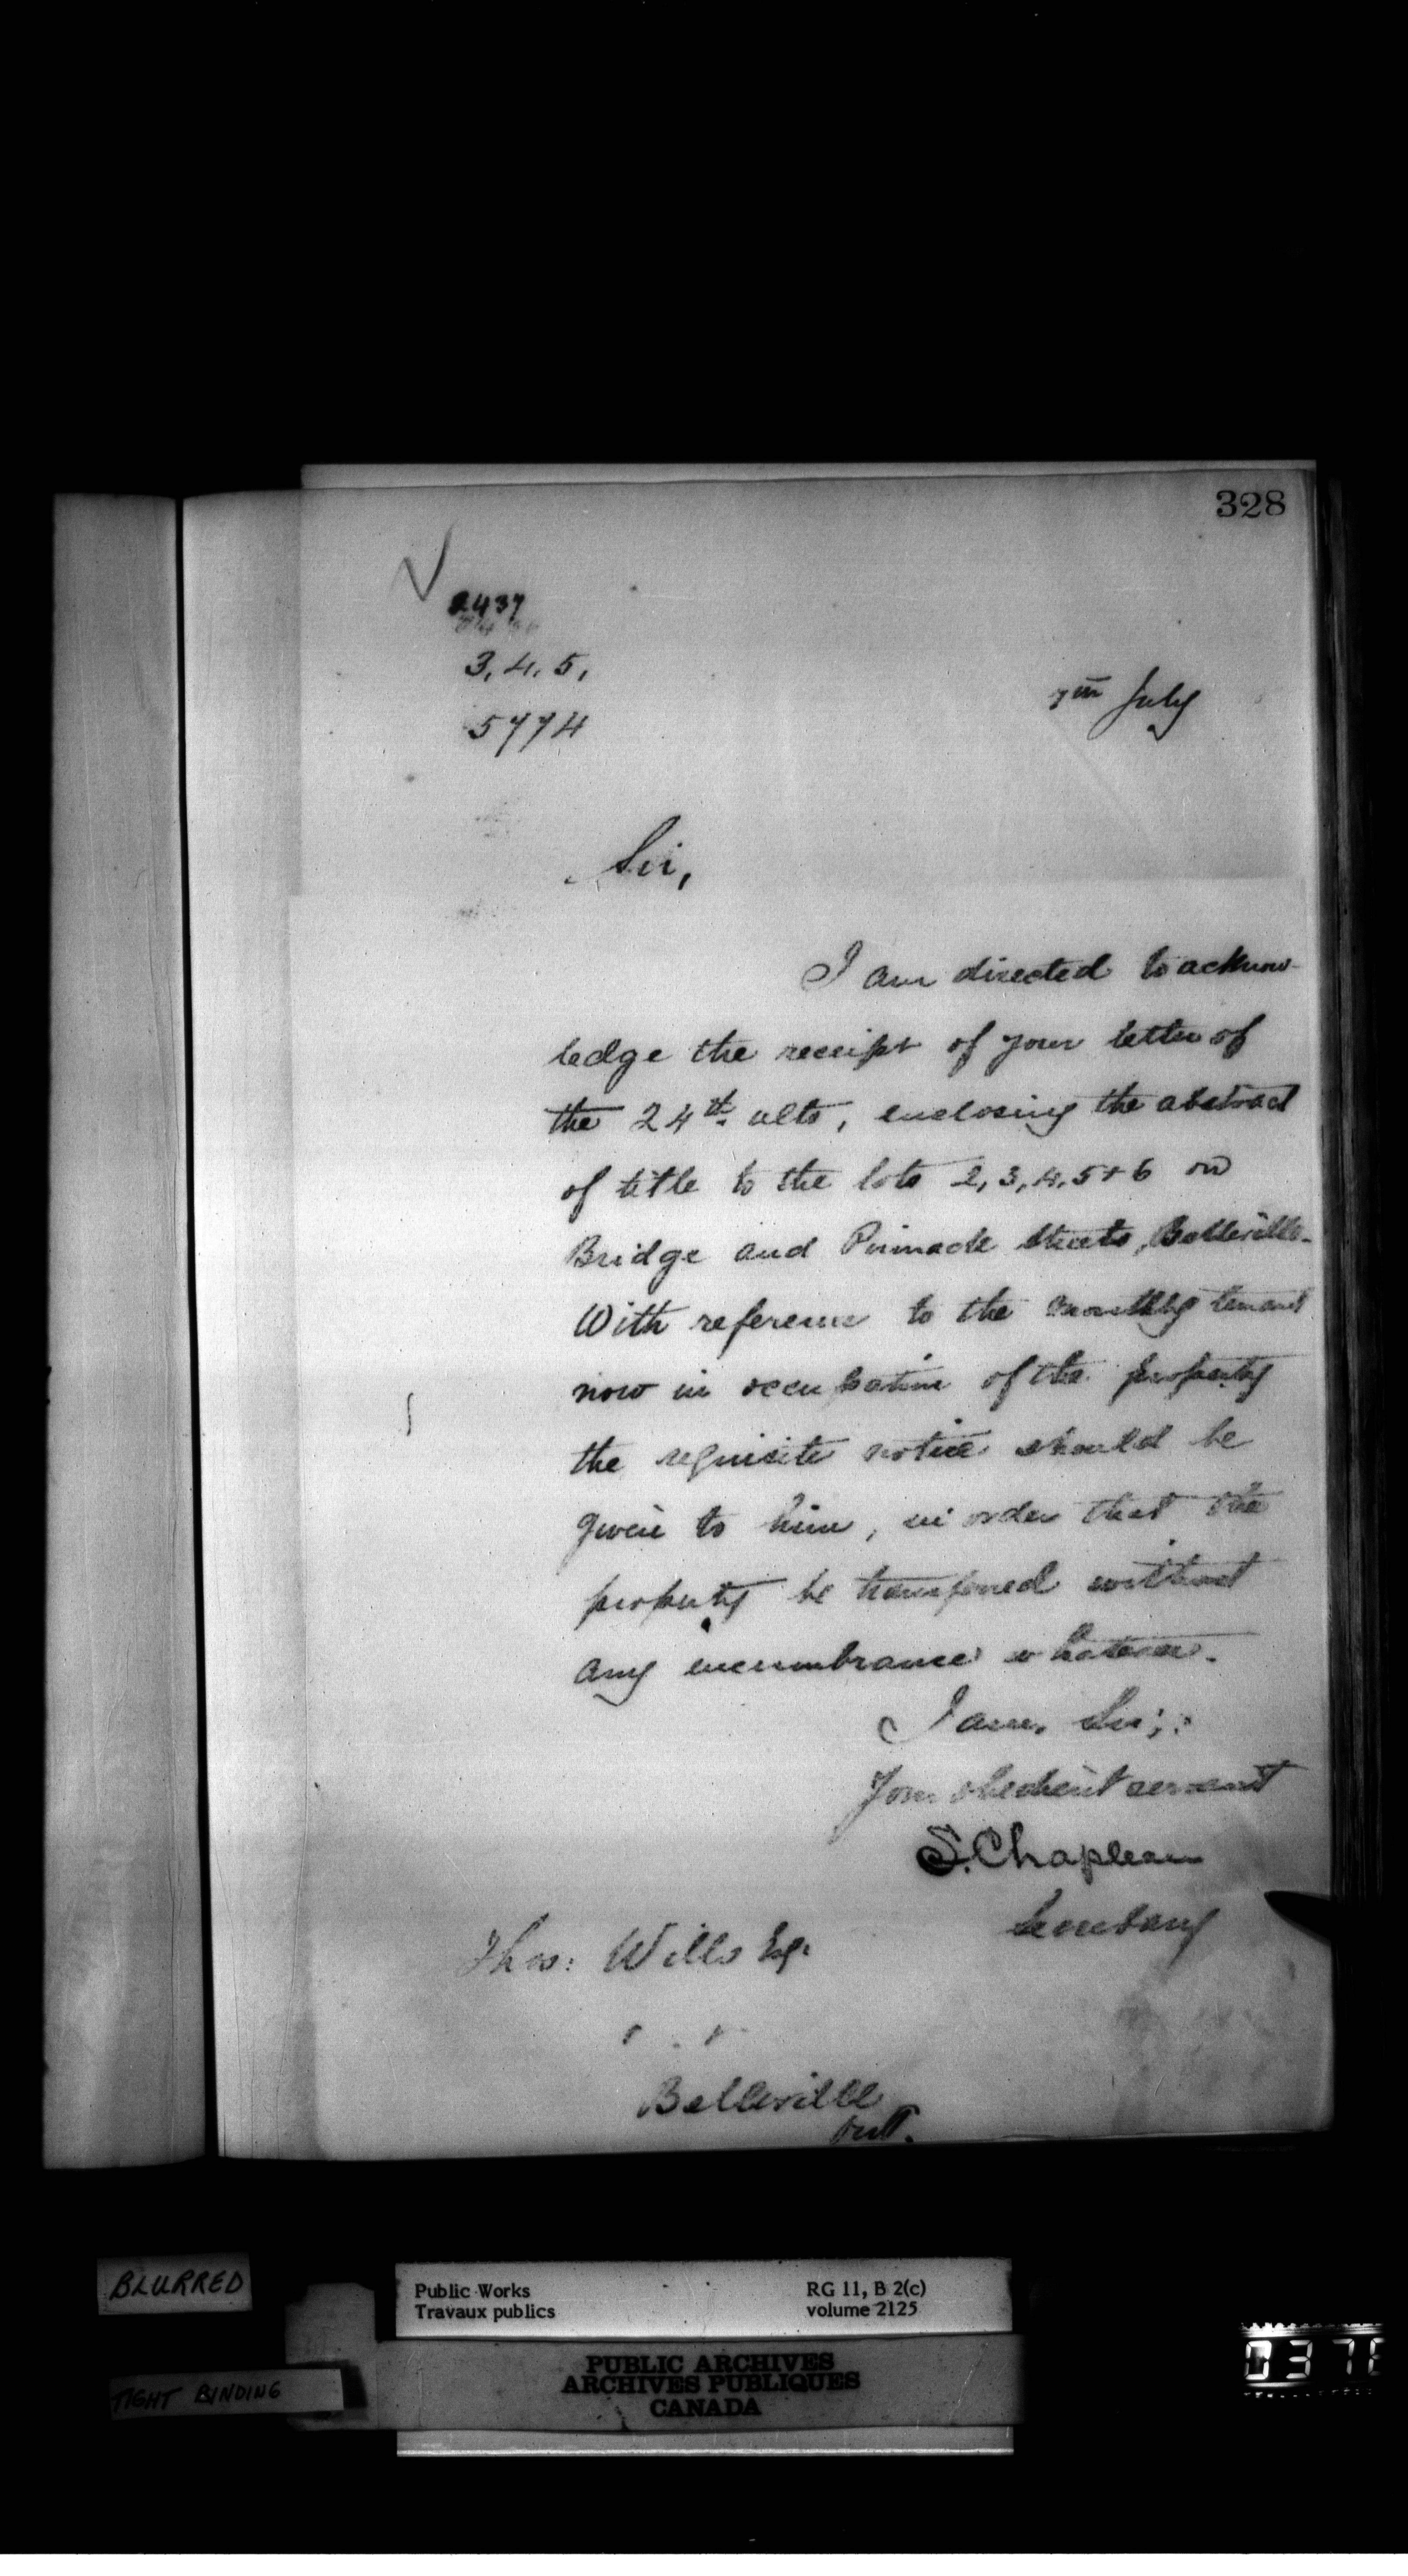 328
2437
3, 4, 5,
5774
7th July
Sir,
I am directed to acknow-
ledge the receipt of your letter of
the 24th. ulto, enclosing the abstract
of title to the lots 2, 3, 4, 5 + 6 on
Bridge and Pinnacle Streets, Belleville.
With reference to the monthly tenant
now in occupation of the property
the requisite notice should be
given to him, in order that the
property be transferred without
any incumbrance whatever.
I am, Sir,
Your obedient servant
S. Chapleau
Secretary
Thos: Wills Esq.
Belleville
Ont.
BLURRED
Public Works
Travaux publics
RG 11, B 2(c)
volume 2125
TIGHT BINDING
PUBLIC ARCHIVES
ARCHIVES PUBLIQUES
CANADA